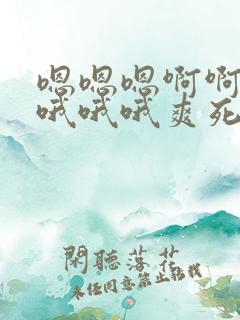 嗯嗯嗯啊啊
哦哦哦爽死
閑聽落花
未经同意禁止转载